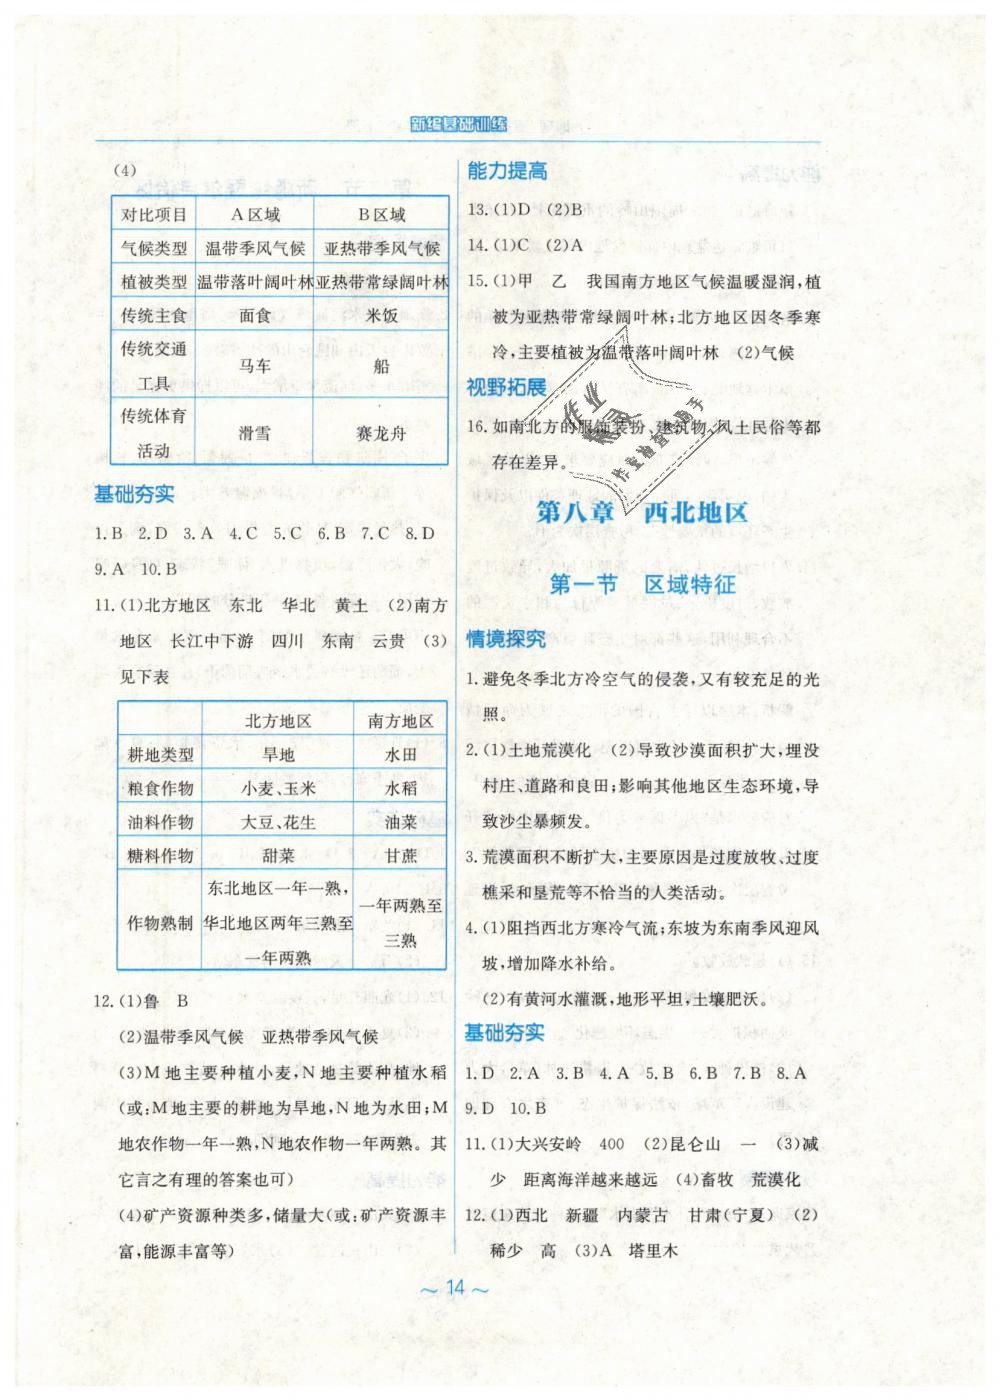 新编基础训练
(4)
对比项目 A区域 B区域
气候类型 温带季风气候 亚热带季风气候
植被类型 温带落叶阔叶林 亚热带常绿阔叶林
传统主食 面食 米饭
传统交通
工具 马车 船
传统体育
活动 滑雪 赛龙舟
基础夯实
1.B 2.D 3.A 4.C 5.C 6.B 7.C 8.D
9.A 10.B
11.(1)北方地区 东北 华北 黄土 (2)南方
地区 长江中下游 四川 东南 云贵 (3)
见下表
北方地区 南方地区
耕地类型 旱地 水田
粮食作物 小麦、玉米 水稻
油料作物 大豆、花生 油菜
糖料作物 甜菜 甘蔗
作物熟制 东北地区一年一熟，
华北地区两年三熟至
一年两熟 一年两熟至
三熟
12.(1)鲁 B
(2)温带季风气候 亚热带季风气候
(3)M地主要种植小麦,N地主要种植水稻
(或:M地主要的耕地为旱地,N地为水田;M
地农作物一年一熟,N地农作物一年两熟。其
它言之有理的答案也可)
(4)矿产资源种类多,储量大(或:矿产资源丰
富,能源丰富等)
能力提高
13.(1)D (2)B
14.(1)C (2)A
15.(1)甲 乙 我国南方地区气候温暖湿润,植
被为亚热带常绿阔叶林;北方地区因冬季寒
冷,主要植被为温带落叶阔叶林 (2)气候
视野拓展
16.如南北方的服饰装扮、建筑物、风土民俗等都
存在差异。
作业
精灵
作业检查小助手
第八章 西北地区
第一节 区域特征
情境探究
1.避免冬季北方冷空气的侵袭,又有较充足的光
照。
2.(1)土地荒漠化 (2)导致沙漠面积扩大,埋没
村庄、道路和良田;影响其他地区生态环境,导
致沙尘暴频发。
3.荒漠面积不断扩大,主要原因是过度放牧、过度
樵采和垦荒等不恰当的人类活动。
4.(1)阻挡西北方寒冷气流;东坡为东南季风迎风
坡,增加降水补给。
(2)有黄河水灌溉,地形平坦,土壤肥沃。
基础夯实
1.D 2.A 3.B 4.A 5.B 6.B 7.B 8.A
9.D 10.B
11.(1)大兴安岭 400 (2)昆仑山 一 (3)减
少 距离海洋越来越远 (4)畜牧 荒漠化
12.(1)西北 新疆 内蒙古 甘肃(宁夏) (2)
稀少 高 (3)A 塔里木
～14～